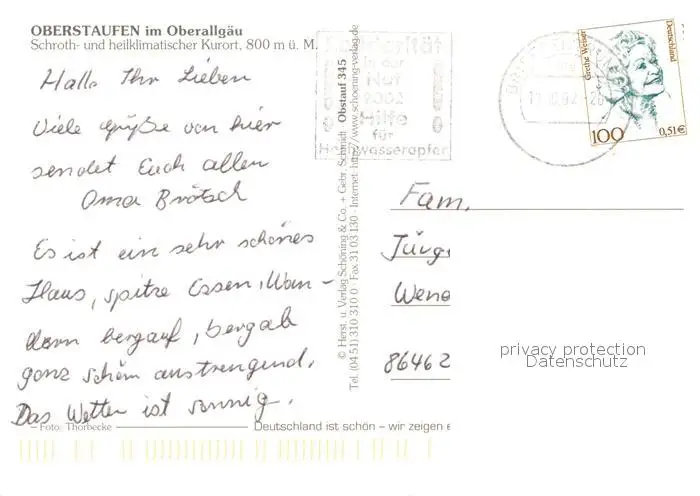 OBERSTAUFEN im Oberallgäu
Schroth- und heilklimatischer Kurort, 800 m ü. M.
Hallo Ihr Lieben
Viele Grüße von hier
sendet Euch allen
Oma Brötsch
Es ist ein sehr schönes
Haus, spitze Essen, Wan-
dern bergauf, bergab
ganz schön anstrengend.
Das Wetter ist sonnig.
– Foto: Thorbecke
Deutschland ist schön – wir zeigen e
© Herst. u. Verlag Schöning & Co. + Gebr. Schmidt · Obstauf 345
Tel. (04 51) 310 310 0 · Fax 31 03 130 · Internet: http://www.schoening-verlag.de
Solidarität
in der
Not
2002
Hilfe
für
Hochwasseropfer
Grethe Weiser
Deutschland
100
0,51€
Fam.
Jürg
Wene
86462
privacy protection
Datenschutz